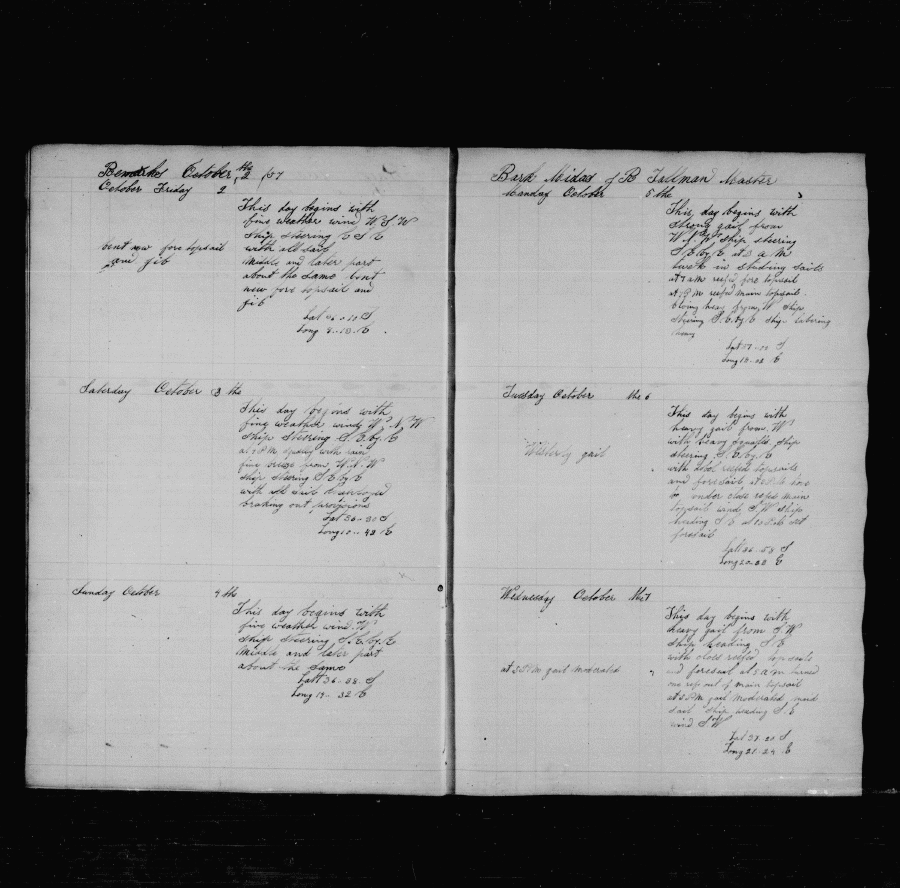 Remarks October the 2 /57
October Friday 2
This day begins with
fine weather wind W. S. W
Ship Steering E S E
bent new fore topsail
and jib
with all sail
Middle and later part
about the Same bent
new fore topsail and
jib
Lat 36 - 10 S
Long 8 - 13 E
Saturday October 3 the
This day begins with
fine weather wind W. N. W
Ship Steering S. E. by. E
at P M with rain
fine breeze from W. N. W
Ship Steering S. E by E
with all Sail
braking out provisions
Lat 36 - 30 S
Long 10 - 42 E
Sunday October 4 the
This day begins with
fine weather wind. W
Ship Steering S. E. by. E
Middle and later part
about the Same
Latt 36 - 38 S
Long 14 - 32 E
Bark Midas J B Tallman Master
Monday October 5 the
This day begins with
Strong gail from
W. S. W Ship steering
S. E. by. E at 3 a M
in studing Sails
at 7 a M reefd fore topsail
at P M reefd main topsail
bloing heavy from W Ship
Steering S. E. by E Ship labering
heavy
Lat 37 - 10 S
Long 18 - 08 E
Tuesday October the 6
This day begins with
heavy gail from. W
with heavy Squalls. Ship
Westerly gail
steering S. E. by. E
with reefed topsails
and foresail. at
to under close reefd main
topsail wind S. W Ship
heading S E at set
foresail
Latt 36 - 58 S
Long 20 - 38 E
Wednesday October the 7
This day begins with
heavy gail from S. W
Ship heading S. E
with close reefed topsails
at 3 P M gail moderated
and foresail at a m turned
one reef out of main topsail
at 3 P M gail moderated
sail Ship heading S. E
wind S W
Lat 38 - 20 S
Long 21 - 24 E